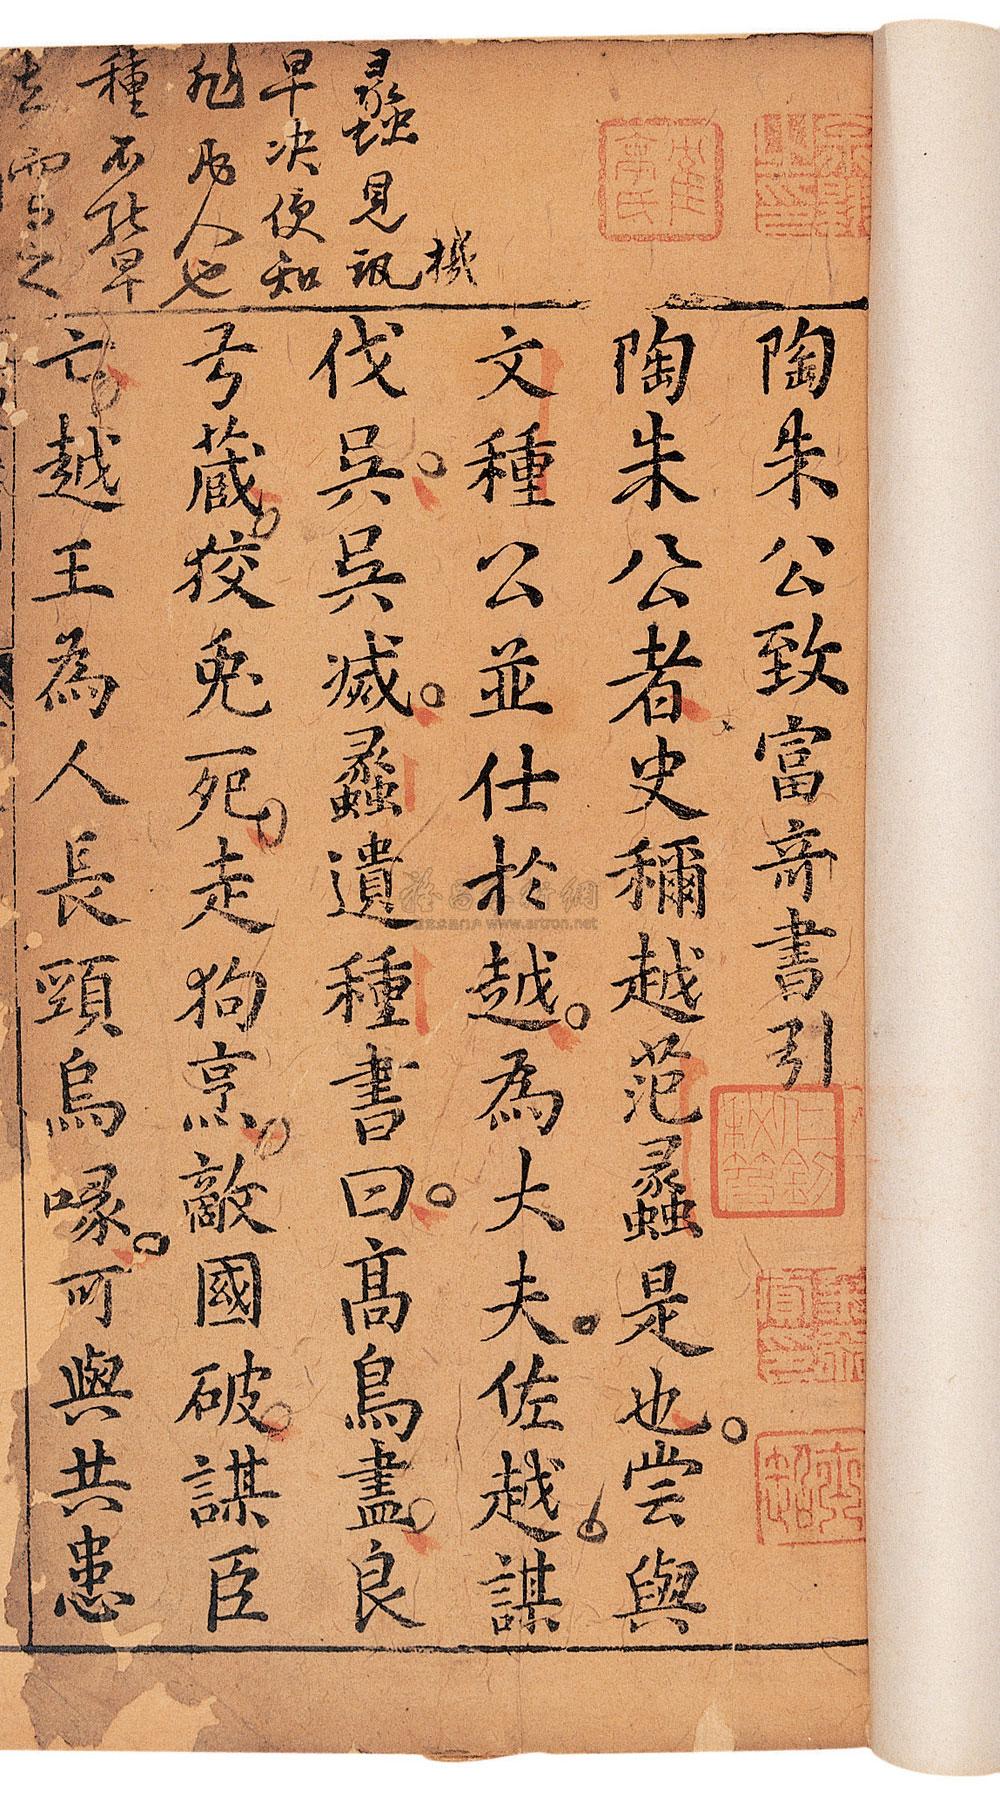 陶朱公致富奇書引
陶朱公者史稱越范蠡是也嘗與
文種公並仕於越為大夫佐越謀
伐吳吳滅蠡遺種書曰高鳥盡良
弓藏狡兔死走狗烹敵國破謀臣
亡越王為人長頸烏喙可與共患
蠡見誅機
早决便知
非凡人也
種不能早
去
www.artron.net